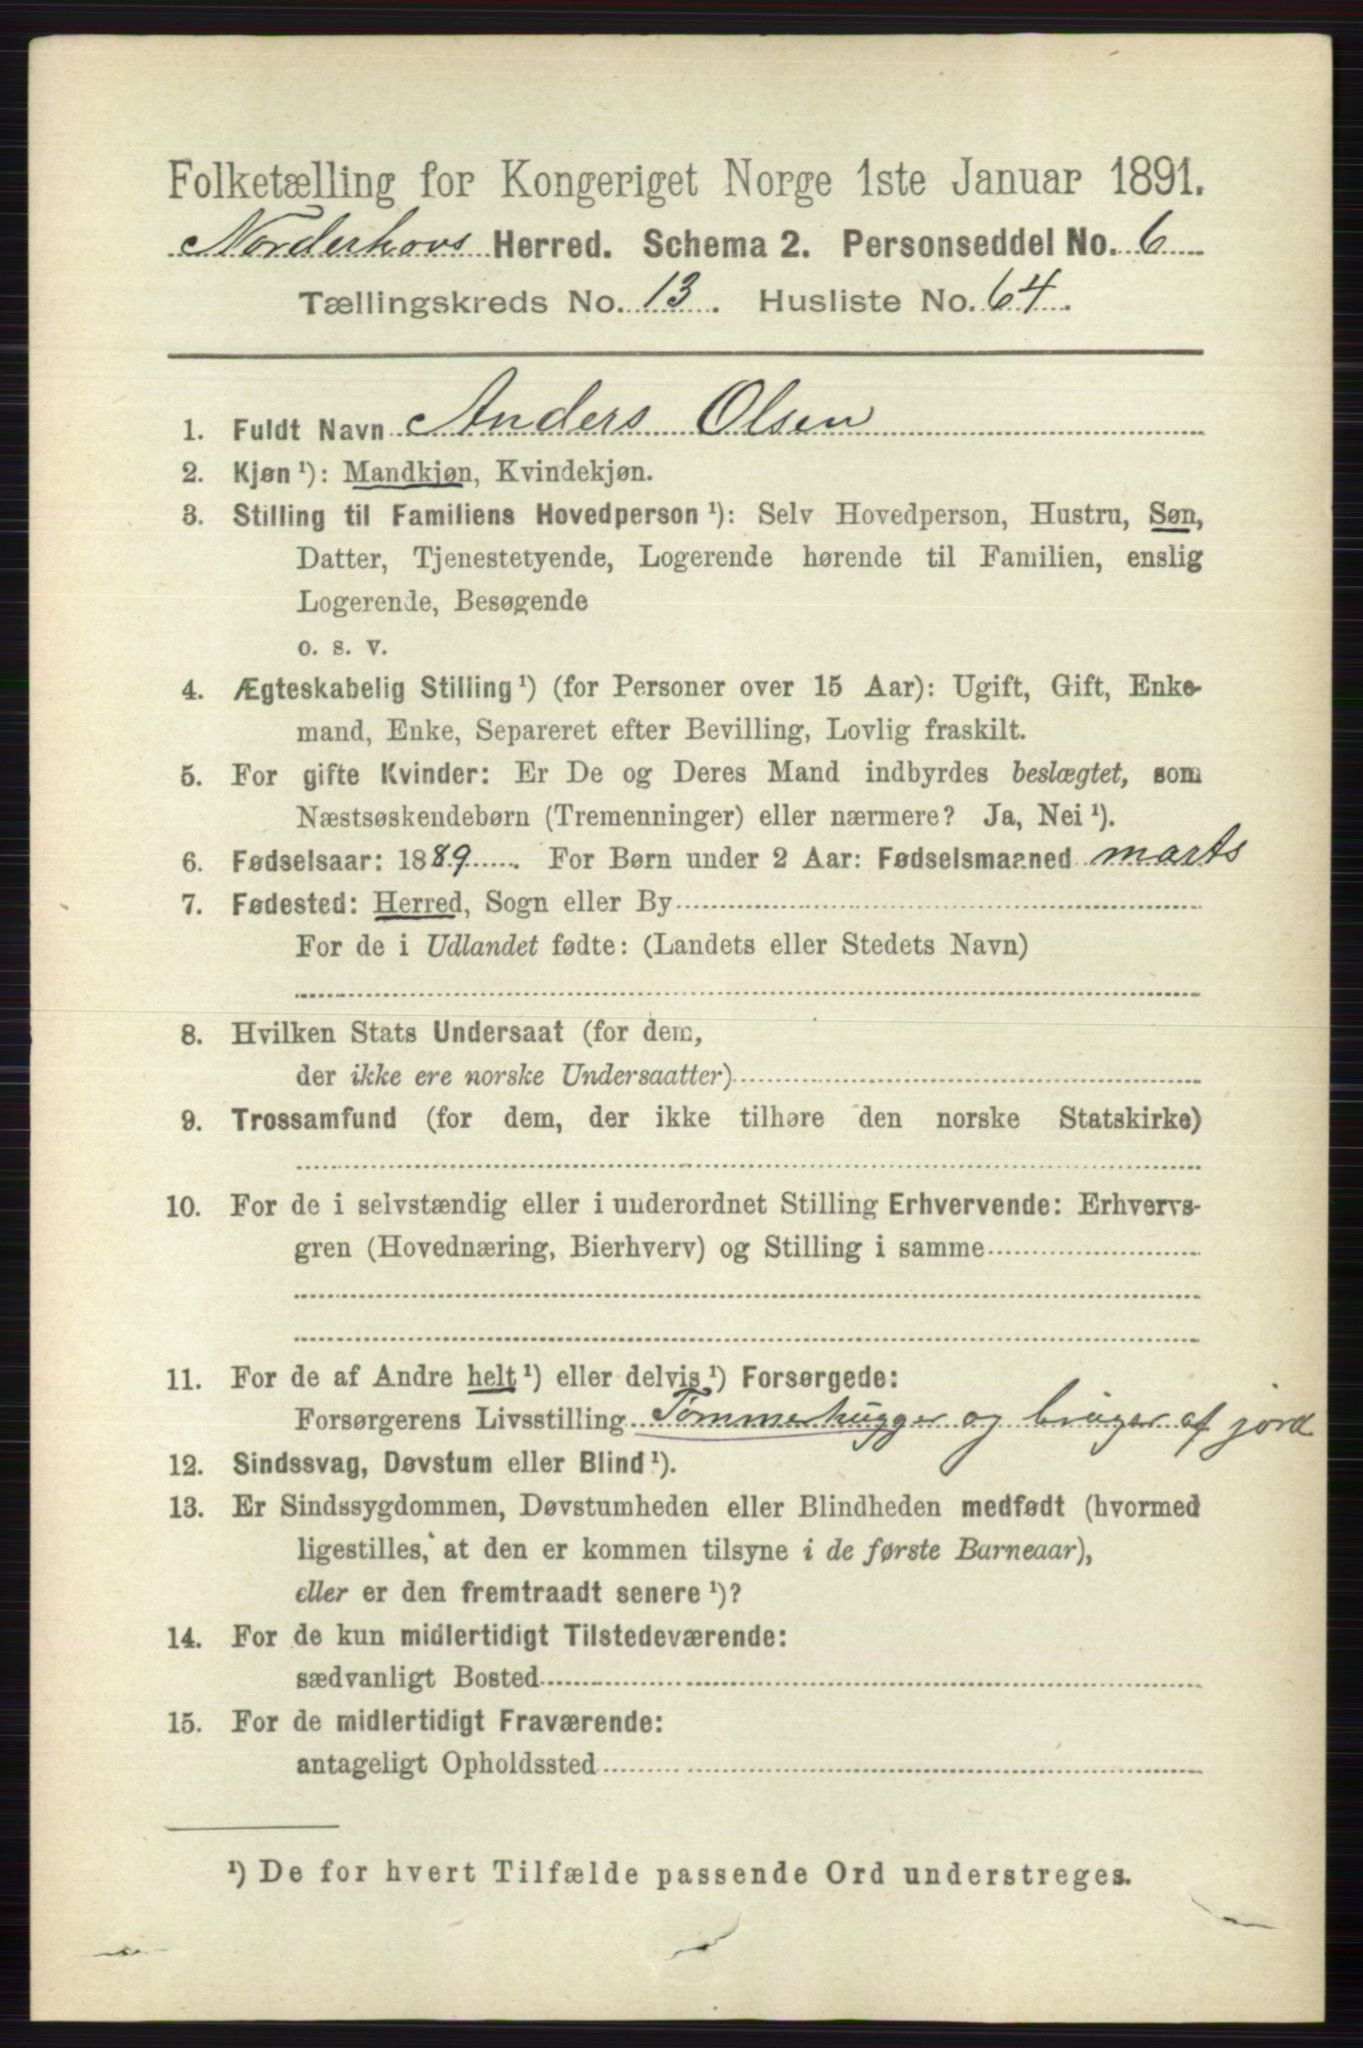 Folketælling for Kongeriget Norge 1ste Januar 1891.
Norderhovs Herred. Schema 2. Personseddel No. 6
Tællingskreds No. 13. Husliste No. 64.
1. Fuldt Navn Anders Olsen
2. Kjøn ¹): Mandkjøn, Kvindekjøn.
3. Stilling til Familiens Hovedperson ¹): Selv Hovedperson, Hustru, Søn,
Datter, Tjenestetyende, Logerende hørende til Familien, enslig
Logerende, Besøgende
o. s. v.
4. Ægteskabelig Stilling ¹) (for Personer over 15 Aar): Ugift, Gift, Enke-
mand, Enke, Separeret efter Bevilling, Lovlig fraskilt.
5. For gifte Kvinder: Er De og Deres Mand indbyrdes beslægtet, som
Næstsøskendebørn (Tremenninger) eller nærmere? Ja, Nei ¹).
6. Fødselsaar: 1889. For Børn under 2 Aar: Fødselsmaaned marts
7. Fødested: Herred, Sogn eller By
For de i Udlandet fødte: (Landets eller Stedets Navn)
8. Hvilken Stats Undersaat (for dem,
der ikke ere norske Undersaatter)
9. Trossamfund (for dem, der ikke tilhøre den norske Statskirke)
10. For de i selvstændig eller i underordnet Stilling Erhvervende: Erhvervs-
gren (Hovednæring, Bierhverv) og Stilling i samme
11. For de af Andre helt ¹) eller delvis ¹) Forsørgede:
Forsørgerens Livsstilling Tømmerhugger og bruger af jord
12. Sindssvag, Døvstum eller Blind ¹).
13. Er Sindssygdommen, Døvstumheden eller Blindheden medfødt (hvormed
ligestilles, at den er kommen tilsyne i de første Barneaar),
eller er den fremtraadt senere ¹)?
14. For de kun midlertidigt Tilstedeværende:
sædvanligt Bosted
15. For de midlertidigt Fraværende:
antageligt Opholdssted
¹) De for hvert Tilfælde passende Ord understreges.